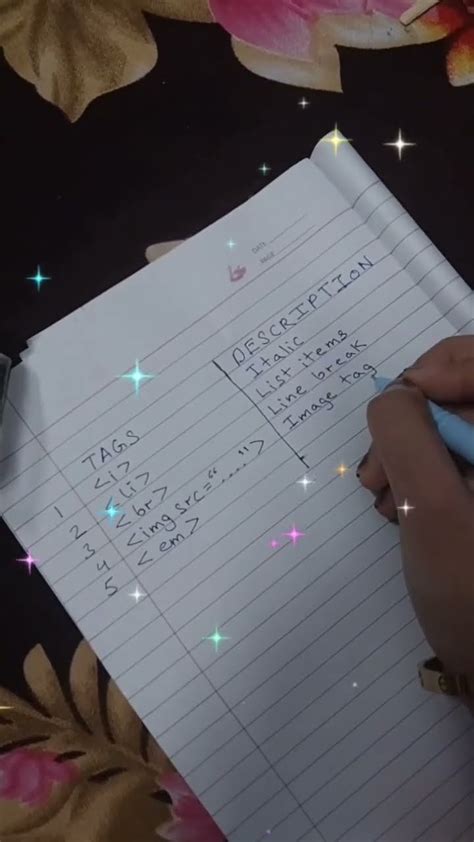 DATE
PAGE
TAGS DESCRIPTION
1 <i> Italic
2 <li> List items
3 <br> Line break
4 <img src="....."> Image tag
5 <em>